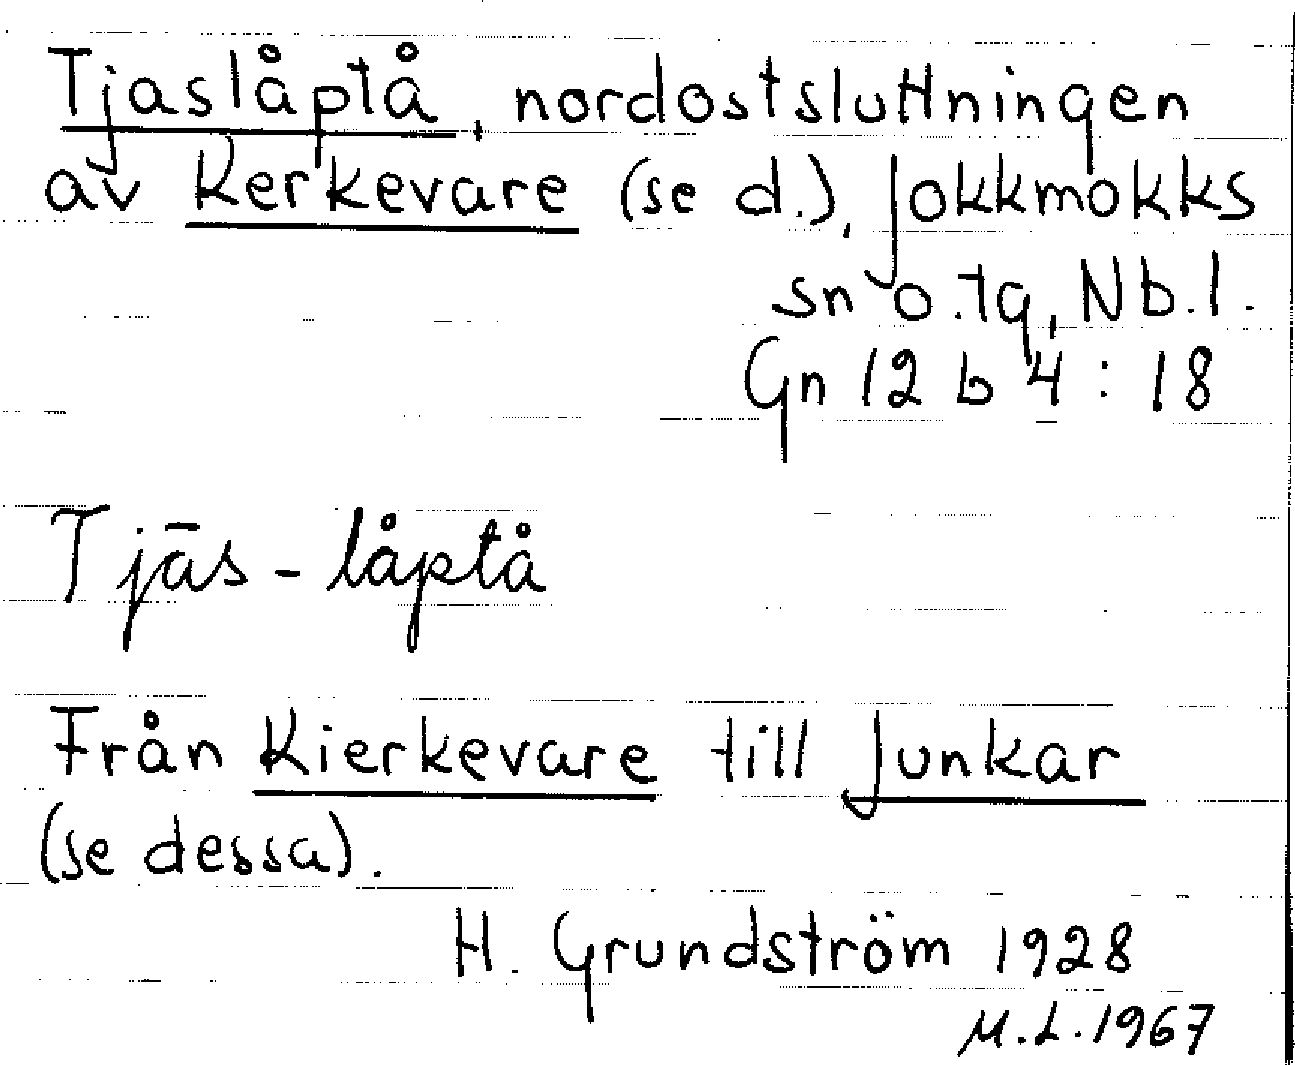 Tjaslåptå, nordostsluttningen
av Kerkevare (se d.), Jokkmokks
sn o. tg, Nb. l.
Gn 12 b 4 : 18
Tjās-låptå
Från Kierkevare till Junkar
(se dessa).
H. Grundström 1928
M.L. 1967